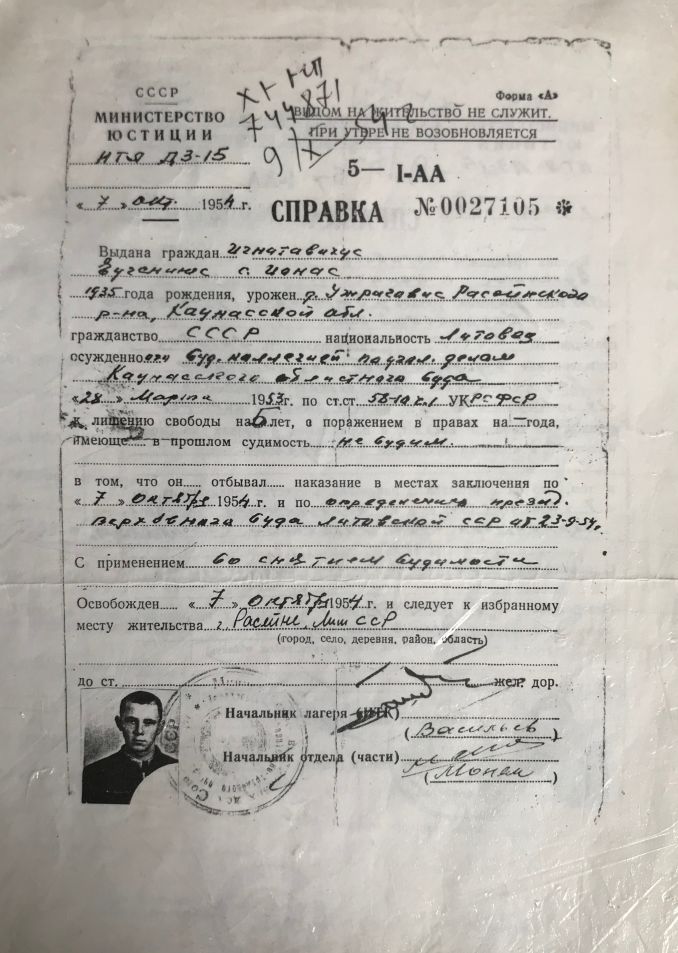 СССР
Форма «А»
МИНИСТЕРСТВО
ЮСТИЦИИ
744871
9/X
ВИДОМ НА ЖИТЕЛЬСТВО НЕ СЛУЖИТ.
ПРИ УТЕРЕ НЕ ВОЗОБНОВЛЯЕТСЯ
ИТЛ ДЗ-15
5— I-АА
« 7 » окт. 1954 г.
СПРАВКА №0027105
Выдана граждан Игнатавичус
с. Ионас
1935 года рождения, урожен д. Ужрагавис Расейнского
р-на, Каунасской обл.
гражданство СССР национальность Литовец
осужденного Суд. коллегией по угол. делам
Каунасского областного Суда
«28» Марта 1953г. по ст.ст 58-10 ч. 1 УК РСФСР
к лишению свободы на 5 лет, с поражением в правах на — года,
имеюще в прошлом судимость не судим.
в том, что он отбывал наказание в местах заключения по
« 7 » октября 1954 г. и по определению презид.
Верховного Суда Литовской ССР от 23-9-54г.
С применением со снятием судимости
Освобожден « 7 » октября 1954 г. и следует к избранному
месту жительства г. Расейне, Лит ССР
(город, село, деревня, район, область)
до ст. жел. дор.
Начальник лагеря (ИТК)
(Васильев)
Начальник отдела (части)